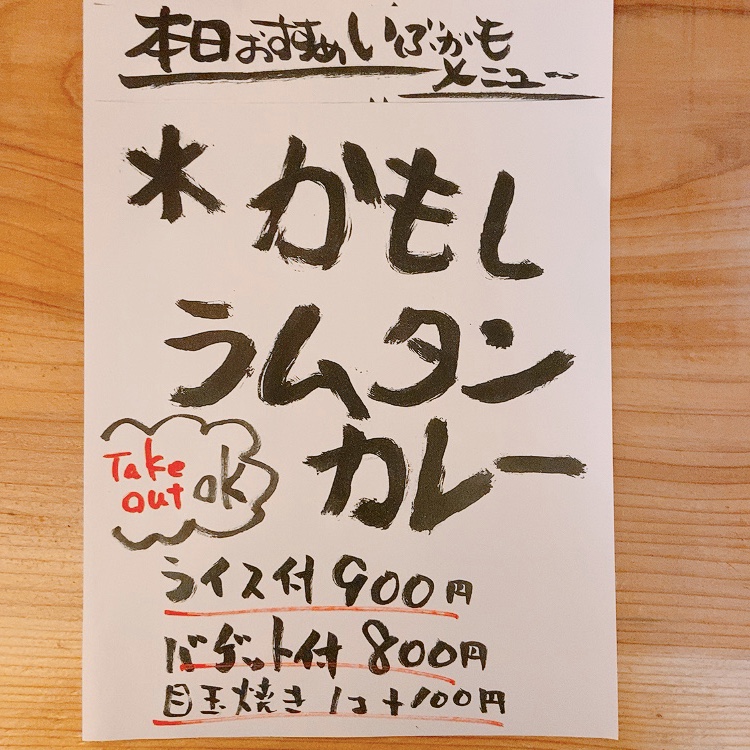 本日おすすめいぶかも
メニュー
* かもし
ラムタン
カレー
Take
out ok
ライス付 900円
バゲット付 800円
目玉焼き 1コ+100円